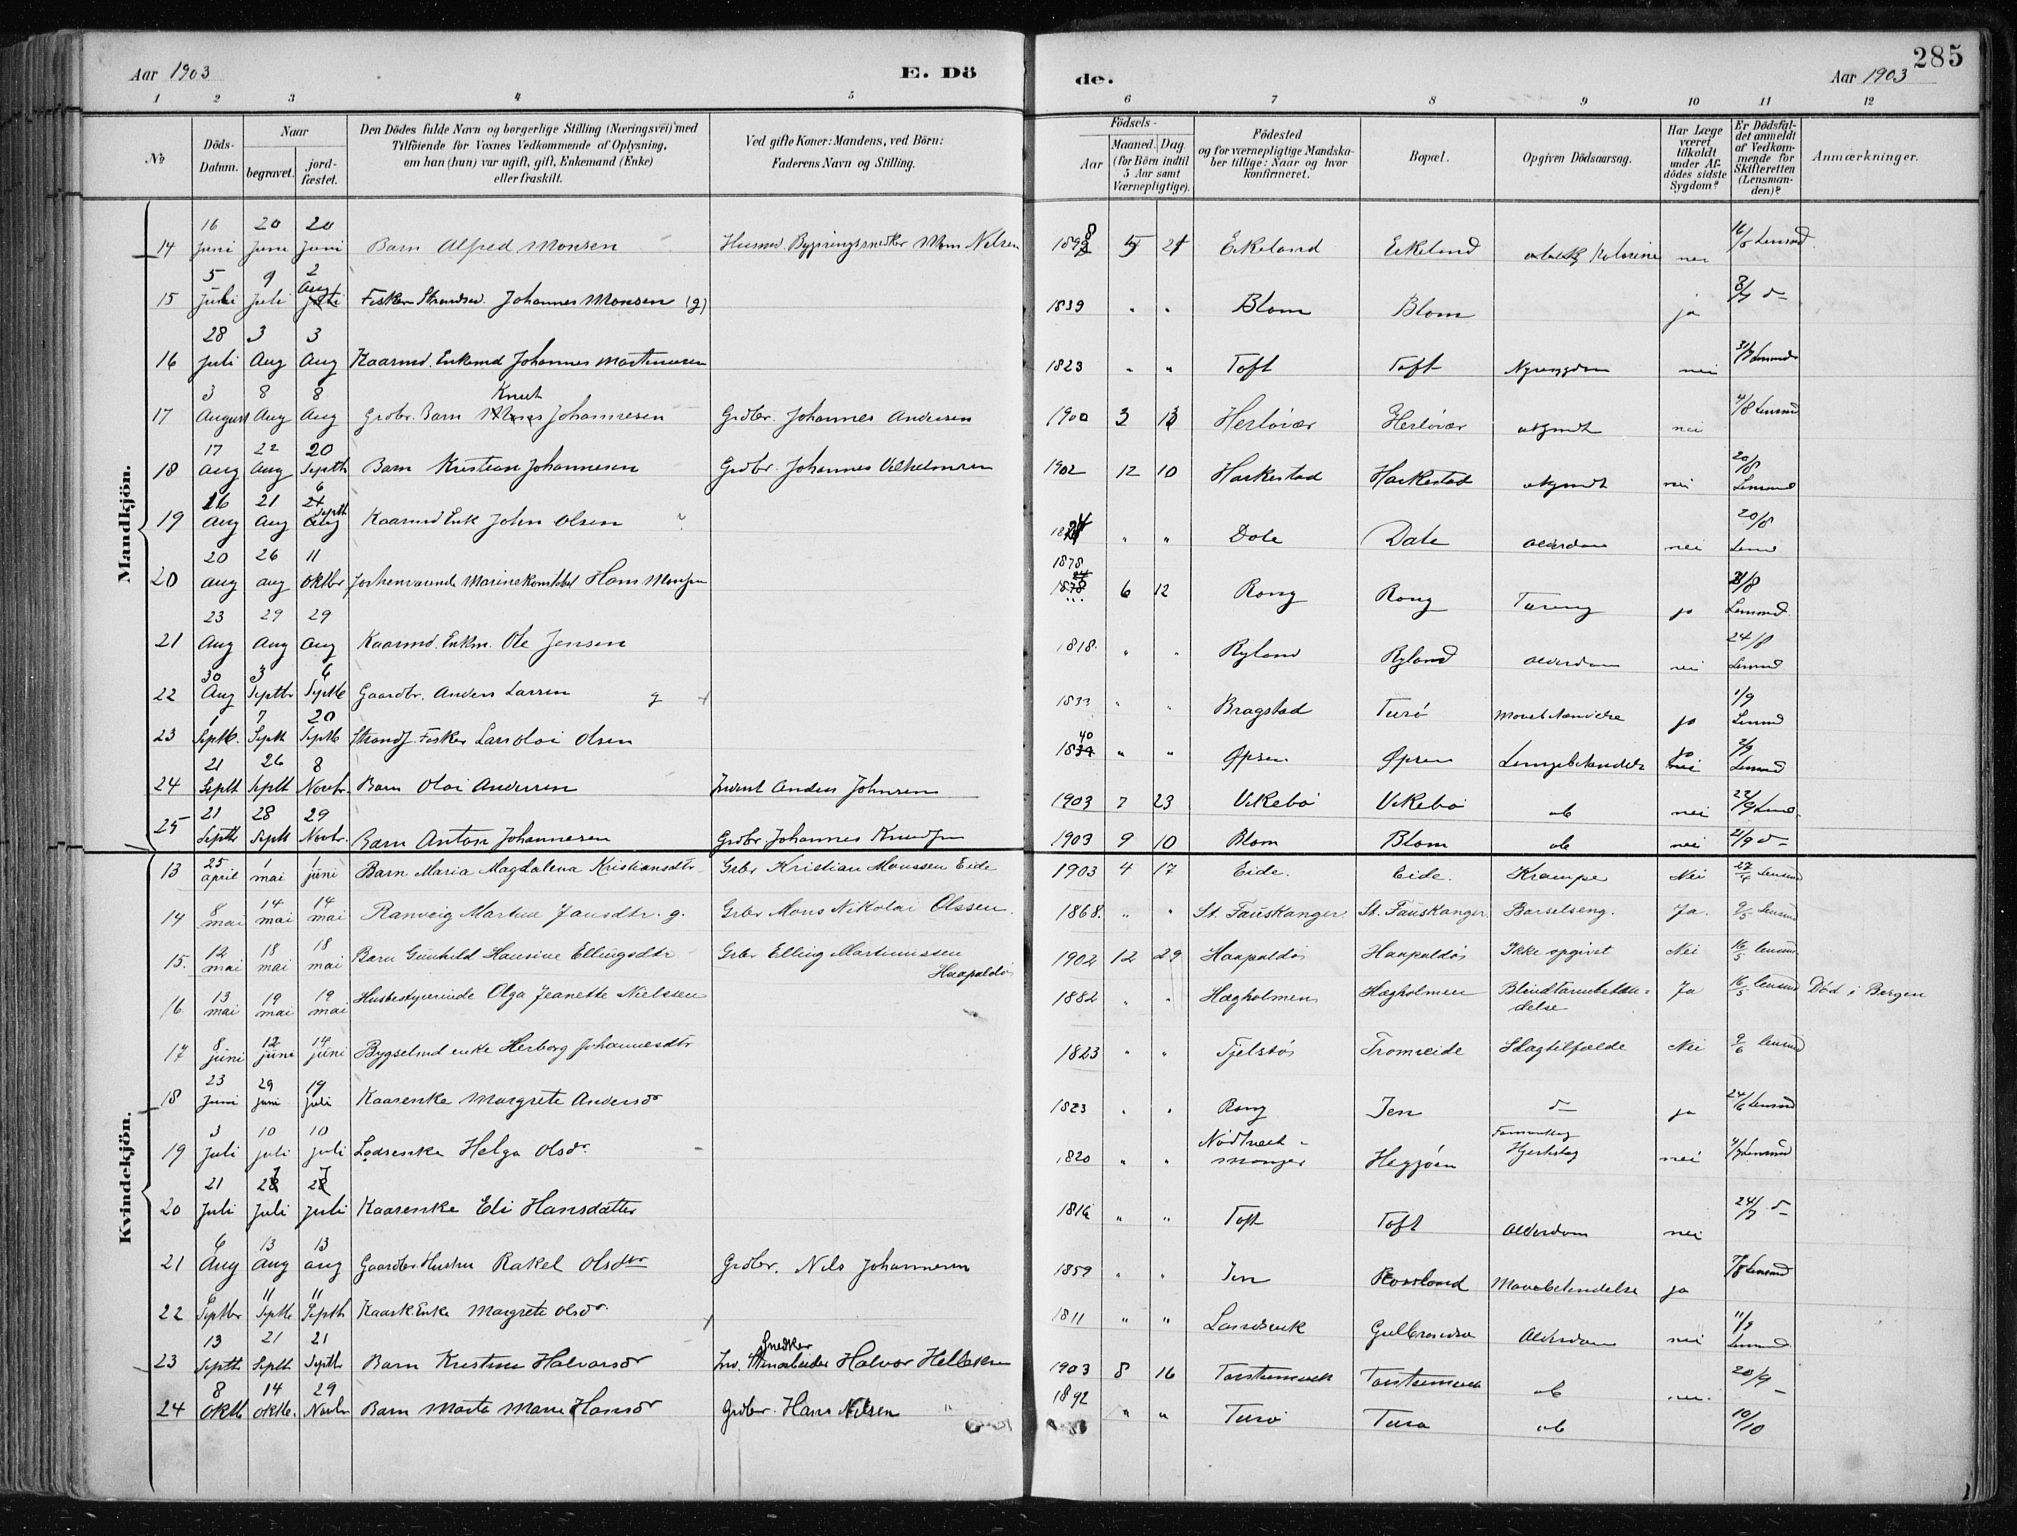 285
Aar 1903 E. Dö de. Aar 1903
1 2 3 4 5 6 7 8 9 10 11 12
№ Döds-Datum. Naar begravet. jord-fæstet. Den Dödes fulde Navn og borgerlige Stilling (Næringsvei) med Tilföiende for Voxnes Vedkommende af Oplysning, om han (hun) var ugift, gift, Enkemand (Enke) eller fraskilt. Ved gifte Koner: Mandens, ved Börn: Faderens Navn og Stilling. Födsels- Aar Maaned. Dag. (for Börn indtil 5 Aar samt Værnepligtige). Födested og for værnepligtige Mandska-ber tillige: Naar og hvor konfirmeret. Bopæl. Opgiven Dödsaarsag. Har Læge været tilkaldt under Af-dödes sidste Sygdom? Er Dödsfal-det anmeldt af Vedkom-mende for Skifteretten (Lensman-den)? Anmærkninger.
Mandkjön.
14 16 Juni 20 Juni 20 Juni Barn Alfred Monsen Mons Nelsen 1898 5 Eikeland Eikeland nei 16/6 Lensmd.
15 5 Juli 9 Juli 2 Aug Fisker Strandsd. Johannes Monsen (g) 1839 " " Blom Blom ja 8/7 d-
16 28 Juli 3 Aug 3 Aug Kaarmd. Enkemd Johannes Martinusen 1823 " " Toft Toft nei 31/7 Lensmd
17 3 August 8 Aug 8 Aug Grdbr. Barn Knut Johannesen Grdbr. Johannes Andersen 1900 3 13 Herløvær Herløvær ukjendt nei 4/8 Lensmd
18 17 Aug 22 Aug 20 Septb Barn Kristian Johannesen Grdbr. Johannes Vilhelmsen 1902 12 10 Harkestad Harkestad ukjendt nei 20/8 Lensmd
19 16 Aug 21 Aug 6 Septb Kaarmd Enk John Olsen 1824 " " Dale Dale Alderdom nei 20/8 Lensmd
20 20 Aug 26 Aug 11 Oktbr Forhenværende Marinekonstabel Hans Monsen 1878 6 12 Rong Rong Tæring ja 21/8 Lensmd
21 23 Aug 29 Aug 29 Aug Kaarmd. Enkm. Ole Jensen 1818 " " Ryland Ryland Alderdom nei 24/8 Lensmd
22 30 Aug 3 Septbr 6 Septb Gaardbr. Anders Larsen g " " Bragstad Turø Mavebetændelse ja 1/9 Lensmd
23 1 Septb. 7 Septb 20 Septb Strands. Fisker Lars Olai Olsen 1840 " " Øpsen Øpsen Lungebetændelse 2/9 Lensmd
24 21 Septb 26 Septb 8 Novbr. Barn Olai Andersen Inderst Anders Johnsen 1903 7 23 Vikebø Vikebø ub nei 22/9 Lensmd.
25 21 Septb 28 Septb 29 Novbr. Barn Anton Johannesen Grdbr. Johannes Knudsen 1903 9 10 Blom Blom ub nei 21/9 d-
Kvindekjön.
13 25 april 1 mai 1 juni Barn Maria Magdalena Kristiansdtr. Grbr Kristian Monssen Eide 1903 4 17 Eide. Eide. Krampe Nei 27/4 lensmd
14 8 mai 14 mai 14 mai Ranveig Martine Jansdtr. g. Grbr Mons Nikolai Olssen. 1868. " " St. Fauskanger. St. Fauskanger. Barselseng. Ja. 9/5 lensmd
15. 12 mai 18 mai 18 mai Barn Gunhild Hansine Ellingsdtr Grbr Elling Martinussen Haapoldøi 1902 12 29 Haapoldøi Haapoldøi Ikke opgivet Nei 16/5 lensmd
16 13 mai 19 mai 19 mai Husbestyrerinde Olga Jeanette Nielssen 1882 " " Hægholmen Hægholmen Blindtarmbetæn-delse Ja 16/5 lensmd Død i Bergen
17 8 juni 12 juni 14 juni Bygselmd enke Herborg Johannesdtr 1823 " " Tjelstøi Tromeide Slagtilfælde Nei 9/6 lensmd
18 23 Juni 29 juni 19 juli Kaarenke Margrete Andersdr 1823 " " Rong Jen d- ja 24/6 Lensmd
19 3 Juli 10 juli 10 juli Lodsenke Helga Olsdr. 1820 " " Nødtveit-manger Hegjøen Hjerteslag nei 4/7 Lensmd
20 21 Juli 27 Juli 27 juli Kaarenke Eli Hansdatter 1816 " " Toft Toft Alderdom nei 24/7 d-
21 6 Aug 13 Aug 13 Aug Gaardbr Hustru Rakel Olsdtr Grdbr. Nils Johannesen 1859 " " Jen Rossland Mavebetændelse ja 7/8 Lensmd
22 6 Septbr 11 Septb 11 Septb Kaark. Enke Margrete Olsdr. 1811 " " Landsvik Gulbrandsø Alderdom nei 11/9 Lensmd
23 13 Septb 21 Septb 21 Septb Barn Kristine Halvorsdr Ind. Snedker Halvor Hellesen 1903 8 16 Torstensvik Torstensvik ub nei. 20/9 -
24 8 Oktb 14 Oktb. 29 Novbr Barn Marta Marie Hansdr Grdbr. Hans Nilsen 1892 " " Turø Turø ub 10/10